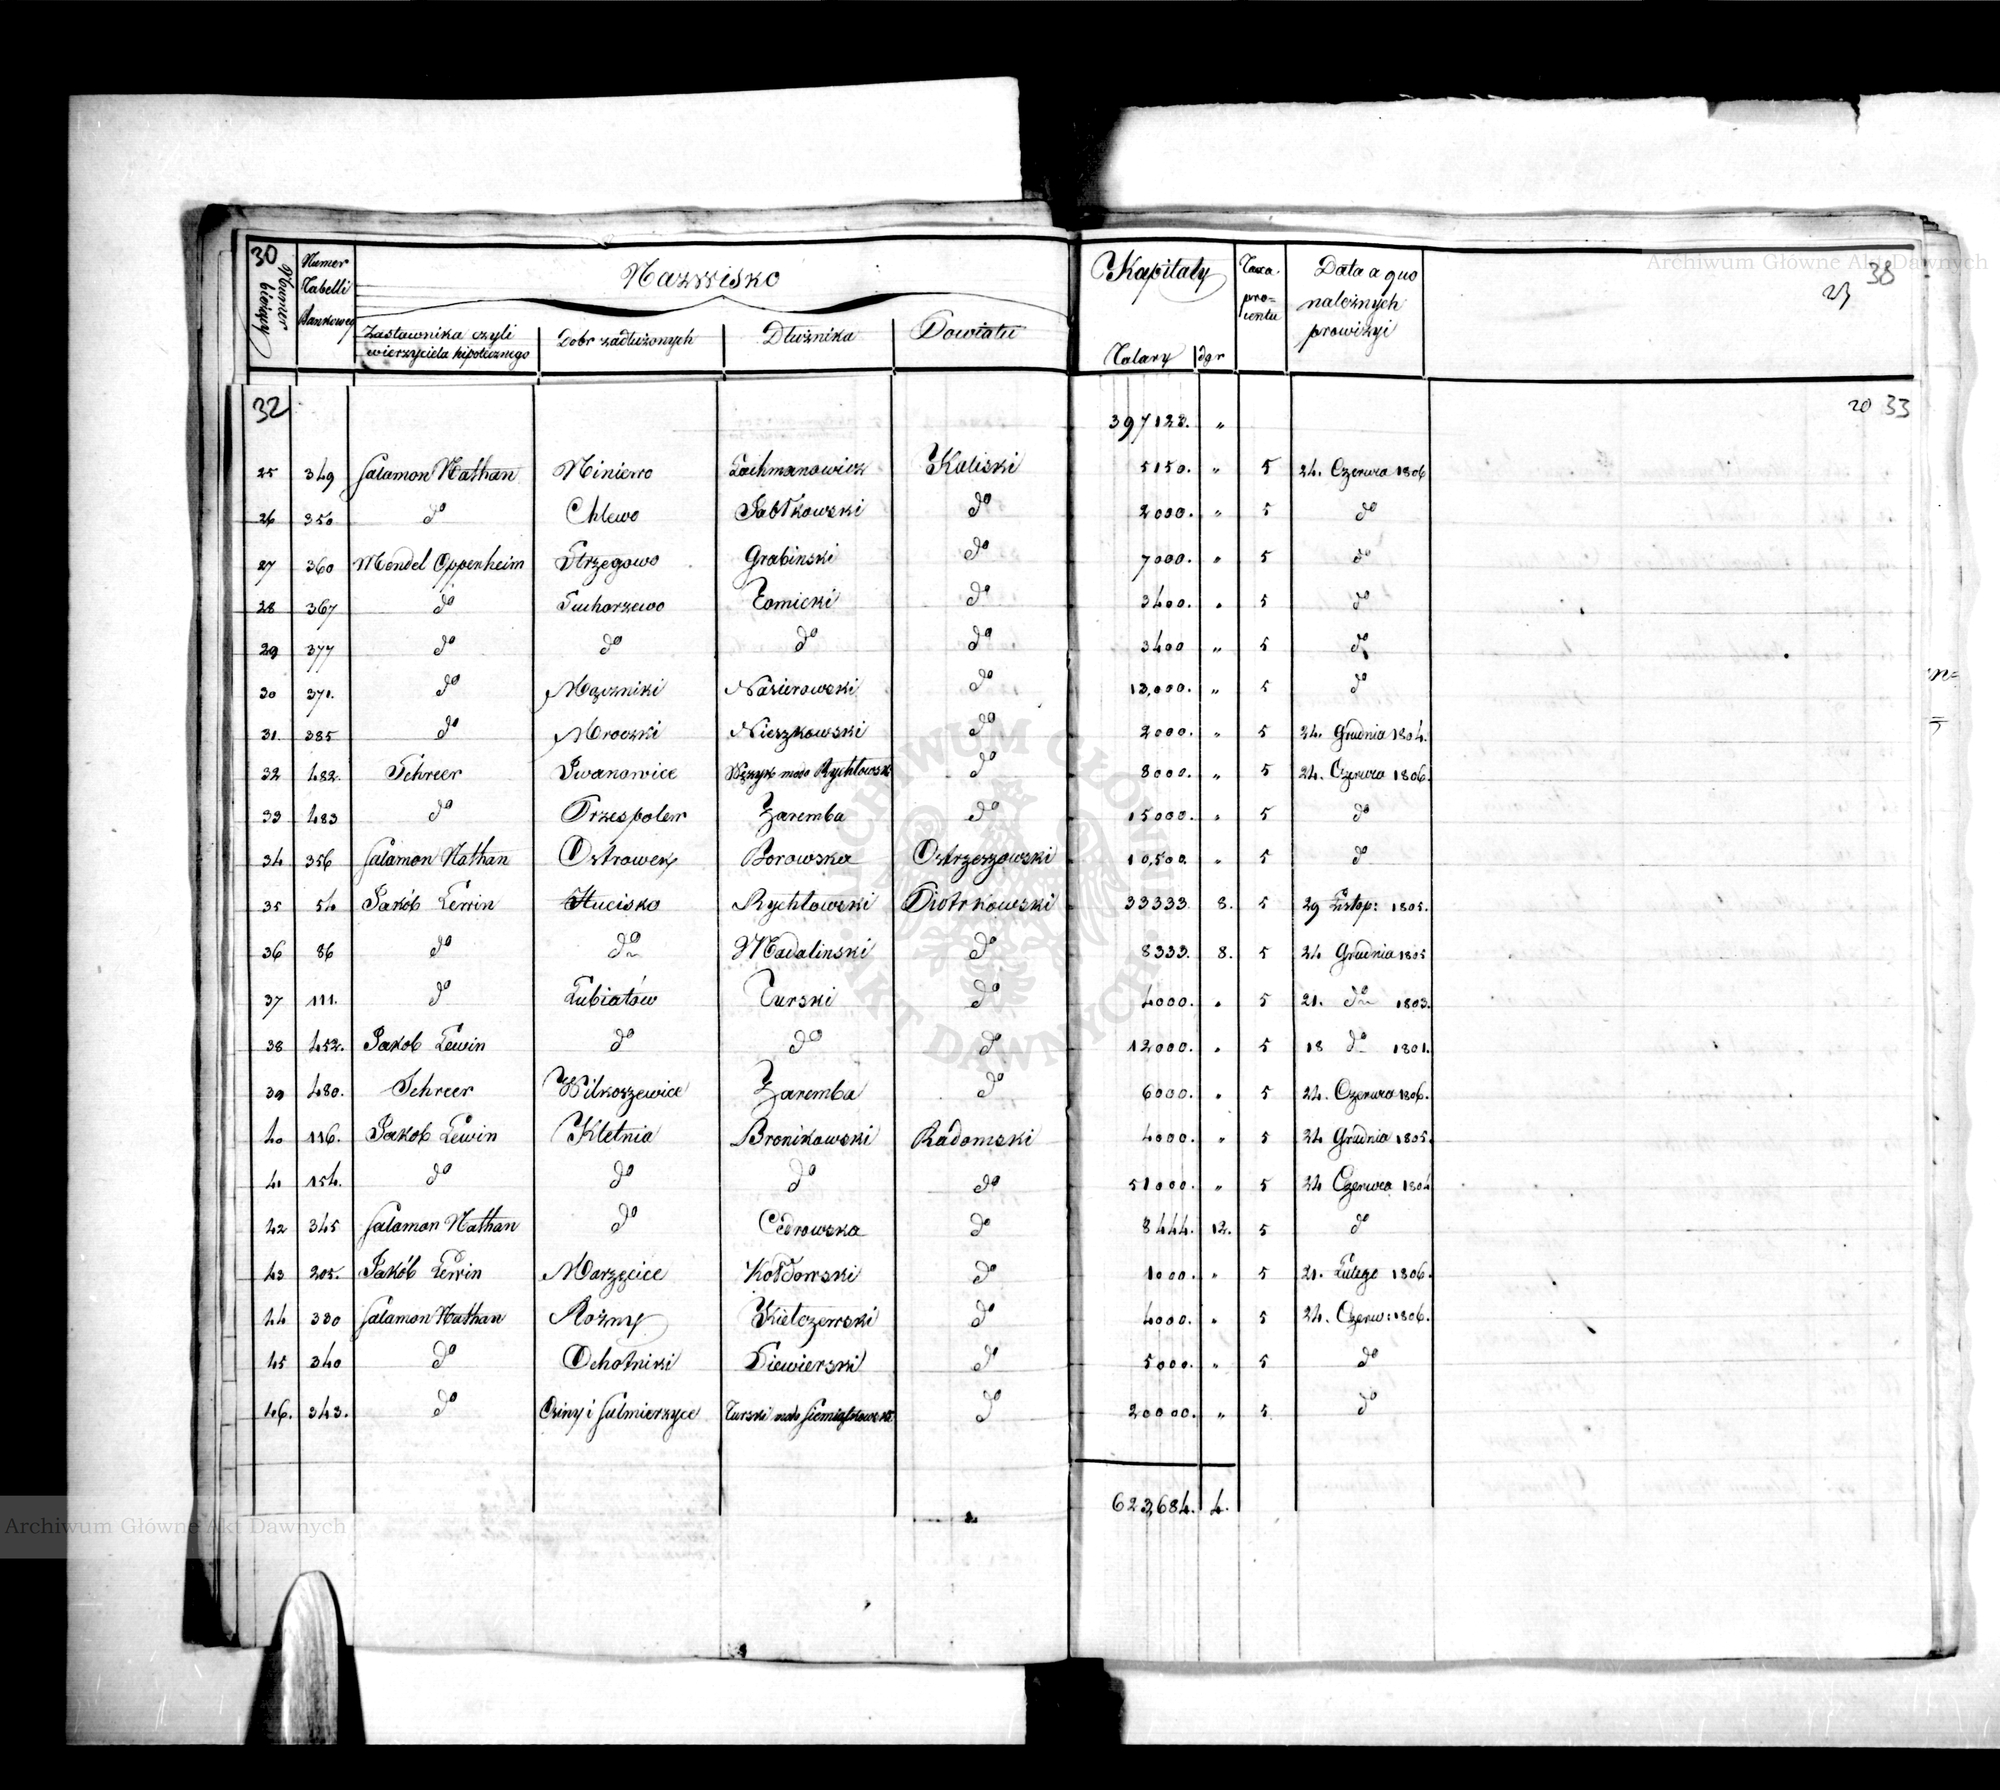 30
38
23
Archiwum Główne Akt Dawnych
Nummer bieżący
Numer Tabelli Bankowey
Nazwisko
Zastawnika czyli wierzyciela hipotecznego
Dobr zadłużonych
Dłużnika
Powiatu
Kapitały
Talary dgr
Taxa procentu
Data a quo należnych prowizyi
32
397128. "
20 33
25 349 Salamon Nathan Miniewo Lachmanowicz Kaliski 5150. " 5 24. Czerwca 1806
26 350 do Chlewo Jabłkowski do 2000. " 5 do
27 360 Mendel Oppenheim Strzegowo Grabinski do 7000. " 5 do
28 367 do Suchorzewo Łomicki do 3400. " 5 do
29 377 do do do do 3400 " 5 do
30 371. do Mączniki Nasierowski do 12,000. " 5 do
31. 385 do Mroczki Nieszkowski do 2000. " 5 24. Grudnia 1804.
32 482. Schreer Iwanowice Wężyk modo Rychłowski do 8000. " 5 24. Czerwca 1806.
33 483 do Przespolew Zaremba do 15000. " 5 do
34 356 Salamon Nathan Ostrowek Borowska Ostrzeszowski 10,500. " 5 do
35 54 Jakób Lewin Hucisko Rychłowski Piotrkowski 33333 8. 5 29 Listop: 1805.
36 86 do do Madalinski do 8333. 8. 5 24 Grudnia 1805
37 111. do Lubiatów Turski do 4000. " 5 21. do 1803.
38 452. Jakob Lewin do do do 12000. " 5 18 do 1801.
39 480. Schreer Wilkoszewice Zaremba do 6000. " 5 24. Czerwca 1806.
40 116. Jakob Lewin Kletnia Bronikowski Radomski 4000. " 5 24 Grudnia 1805.
41 154. do do do do 51000. " 5 24 Czerwca 1804
42 345 Salamon Nathan do Cedrowska do 8444. 12. 5 do
43 205. Jakób Lewin Marzęcice Kołdowski do 1000. " 5 21. Lutego 1806.
44 330 Salamon Nathan Rożny Kiełczewski do 4000. " 5 24. Czerw: 1806.
45 340 do Ochotniki Siewierski do 5000. " 5 do
46. 343. do Osiny i Sulmierzyce Turski modo Siemiątkowski do 20000. " 5 do
623,684. 4.
Archiwum Główne Akt Dawnych
ARCHIWUM GŁÓWNE AKT DAWNYCH